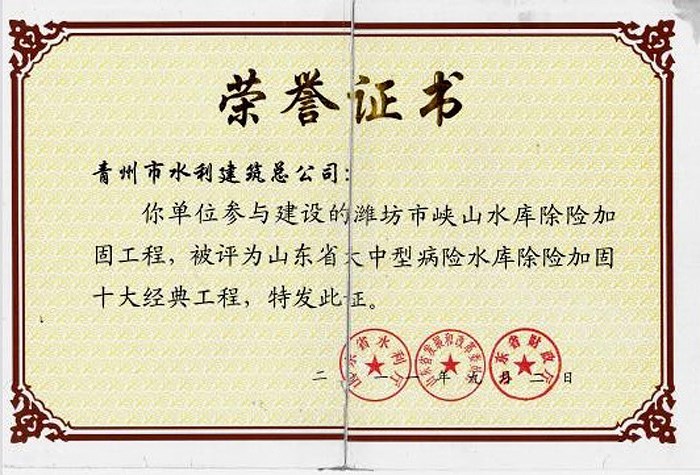 荣誉证书
青州市水利建筑总公司:
你单位参与建设的潍坊市峡山水库除险加
固工程，被评为山东省大中型病险水库除险加固
十大经典工程，特发此证。
山东省水利厅
山东省发展和改革委员会
山东省财政厅
二〇一一年九月二日